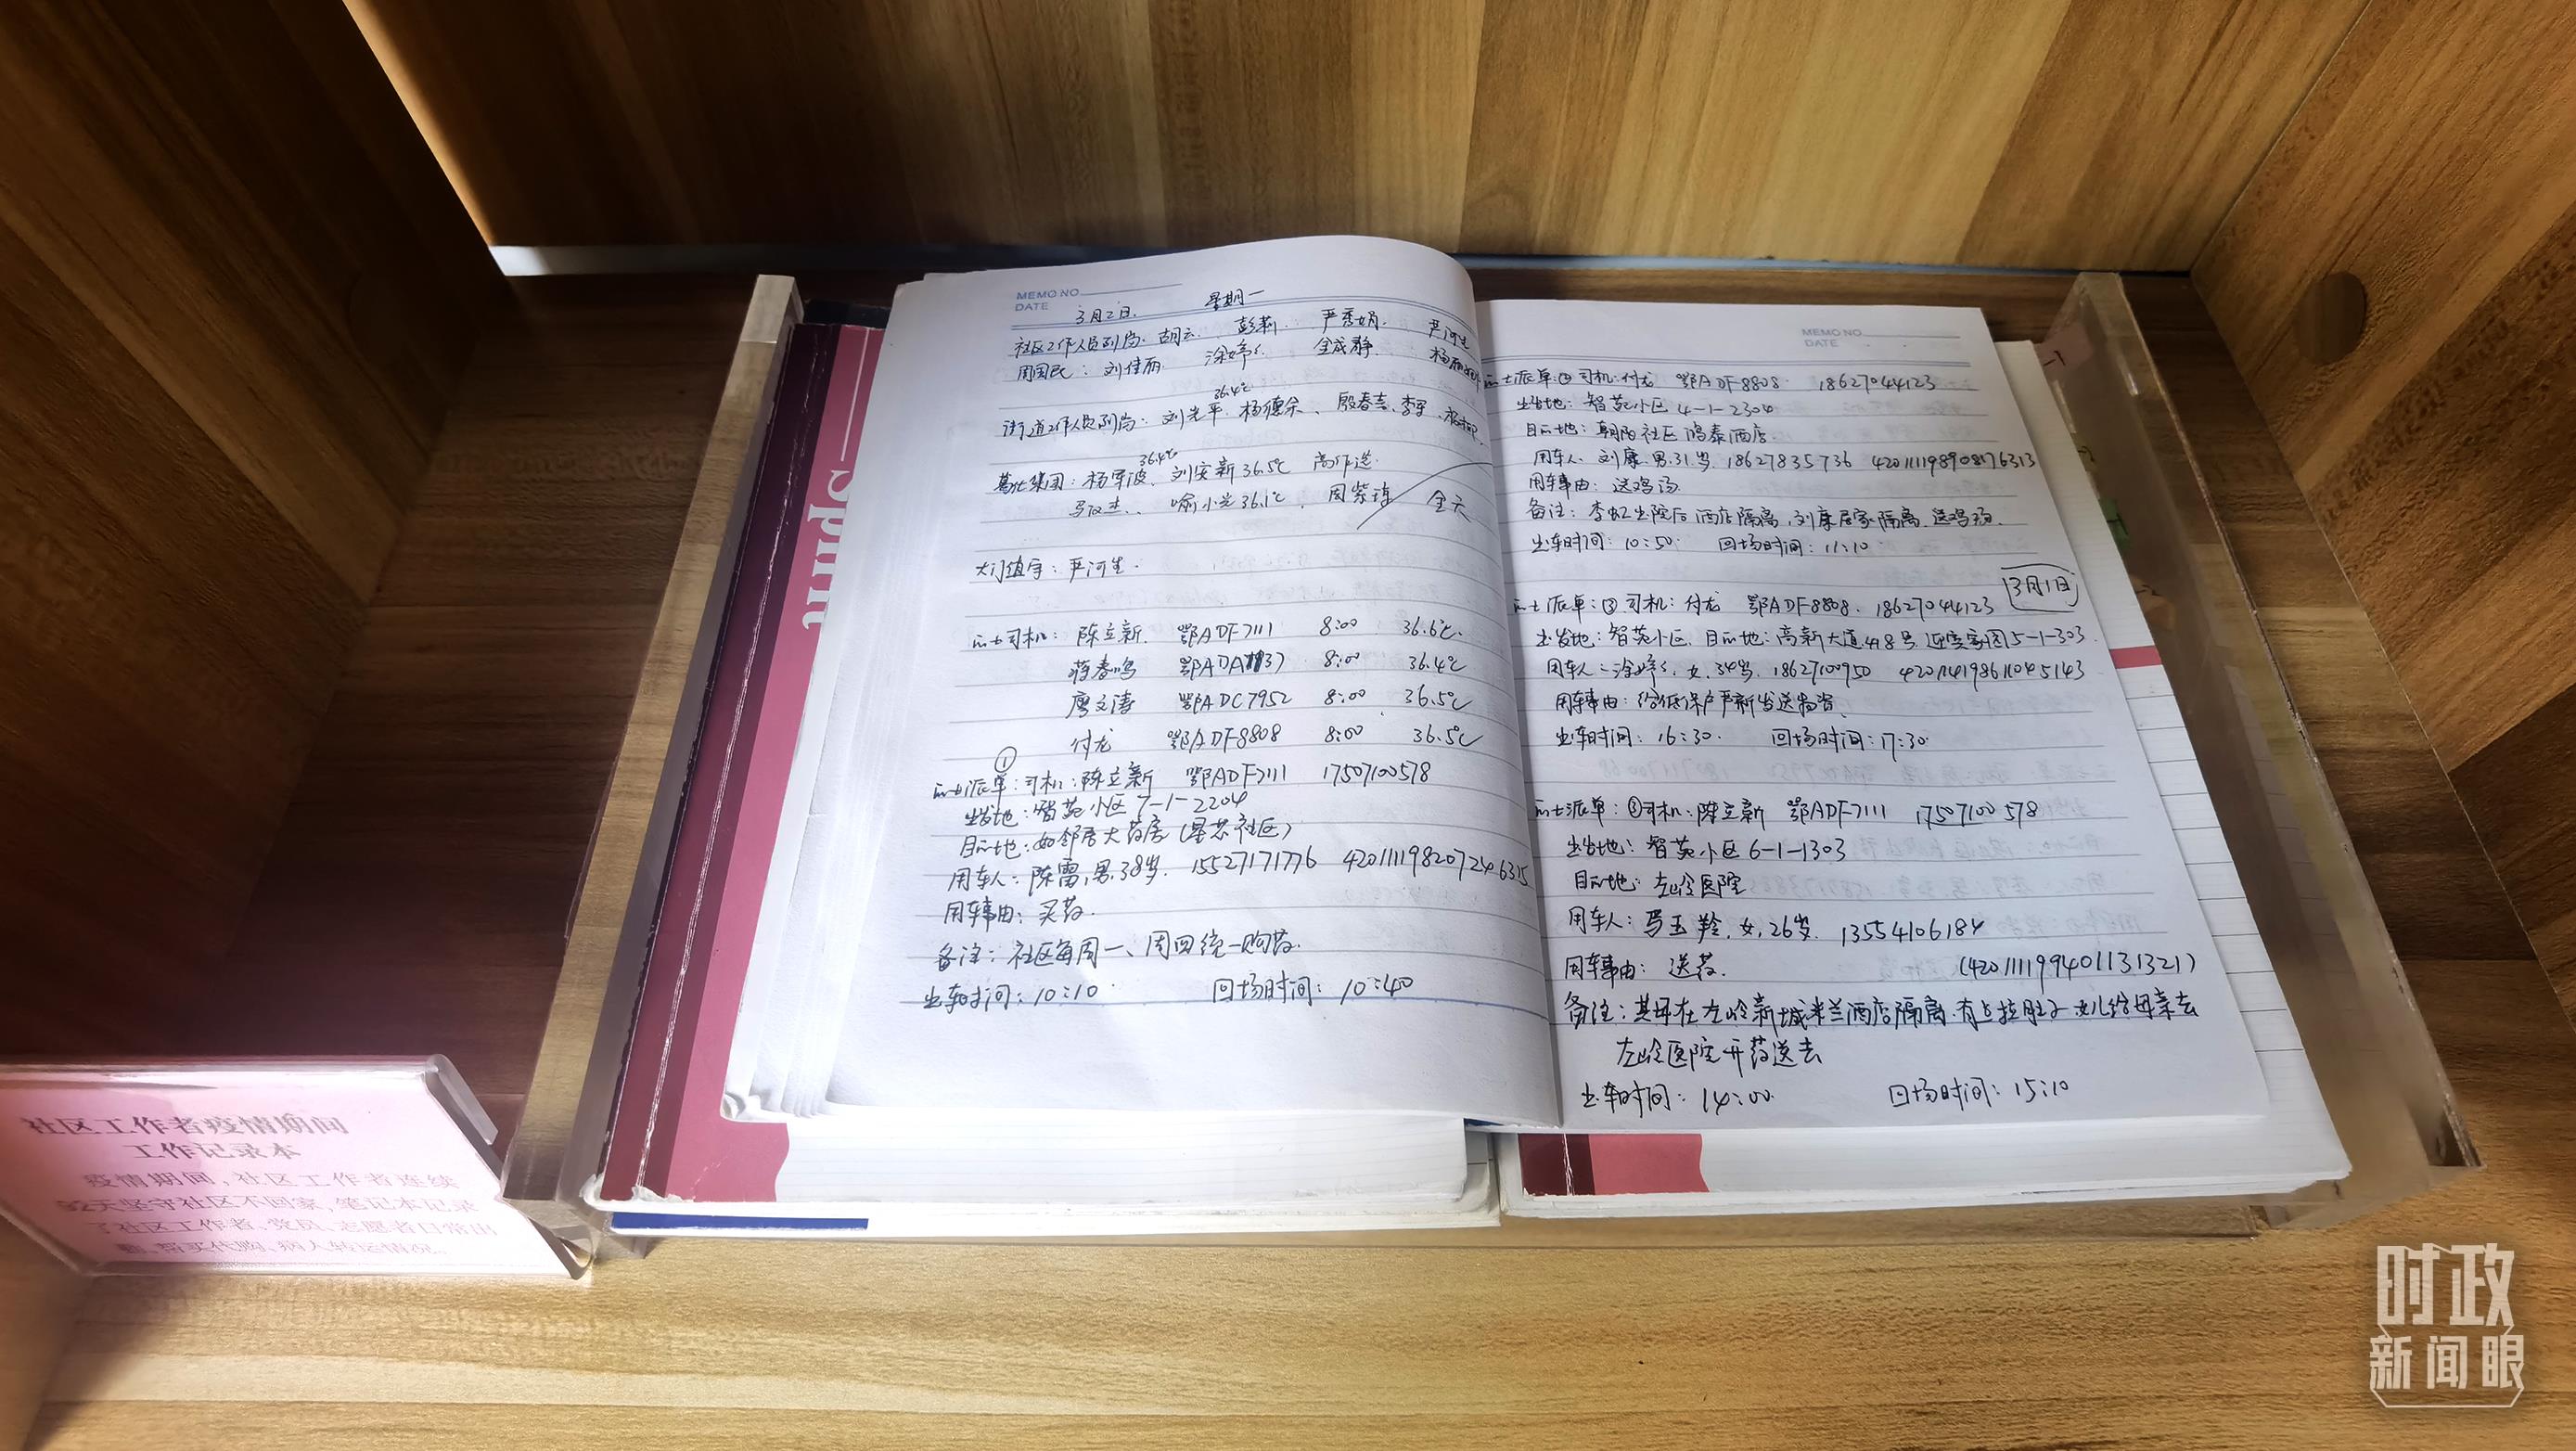 MEMO NO
DATE
3月2日. 星期一
社区工作人员到岗: 胡云. 彭莉. 严秀娟. 严河生
周国民: 刘佳丽. 涂婷婷. 金成静.
36.4℃
街道工作人员到岗: 刘光平. 杨德余、殷春喜、李军、
36.4℃
葛化集团: 杨军波、刘安新36.5℃ 尚作送.
马汉杰、、喻小光36.1℃、周紫琼 全天
大门值守: 严河生.
的士司机: 陈立新. 鄂ADF7111 8:00 36.6℃.
蒋春鸣 8:00 36.4℃
廖文涛 鄂ADC7952 8:00 36.5℃
付龙 鄂ADF8808 8:00 36.5℃
①
的士派单: 司机: 陈立新 鄂ADF7111 17507100578
出发地: 智苑小区7-1-2204
目的地: 如邻居大药房(星芯社区)
用车人: 陈雷, 男, 38岁. 15527171776 420111198207246315
用车事由: 买药.
备注: 社区每周一、周四统一购药.
出车时间: 10:10. 回场时间: 10:40
MEMO NO
DATE
的士派单:② 司机: 付龙 鄂ADF8808 18627044123
出发地: 智苑小区 4-1-2304
目的地: 朝阳社区鸿泰酒店.
用车人. 刘康. 男. 31岁. 18627835736 420111198908176313
用车事由: 送鸡汤
备注: 李虹出院后酒店隔离, 刘康居家隔离. 送鸡汤.
出车时间: 10:50. 回场时间: 11:10
3月1日
的士派单:③ 司机: 付龙 鄂ADF8808. 18627044123
出发地: 智苑小区. 目的地: 高新大道418号迎宾家园5-1-303.
用车人: 涂婷婷, 女. 34岁. 18627100950 420114198611045143
用车事由: 给低保户严新发送物资.
出车时间: 16:30. 回场时间: 17:30
的士派单: ③司机: 陈立新 鄂ADF7111 17507100578
出发地: 智苑小区6-1-1303
目的地: 左岭医院
用车人: 马玉羚. 女, 26岁. 13554106184
用车事由: 送药. (420111199401131321)
备注: 其母在左岭新城米兰酒店隔离. 有点拉肚子. 女儿给母亲去
左岭医院开药送去
出车时间: 14:00. 回场时间: 15:10
Spirit
社区工作者疫情期间
工作记录本
疫情期间,社区工作者连续
92天坚守社区不回家,笔记本记录
了社区工作者、党员、志愿者日常出
勤、帮买代购、病人转运情况。
时政
新闻眼